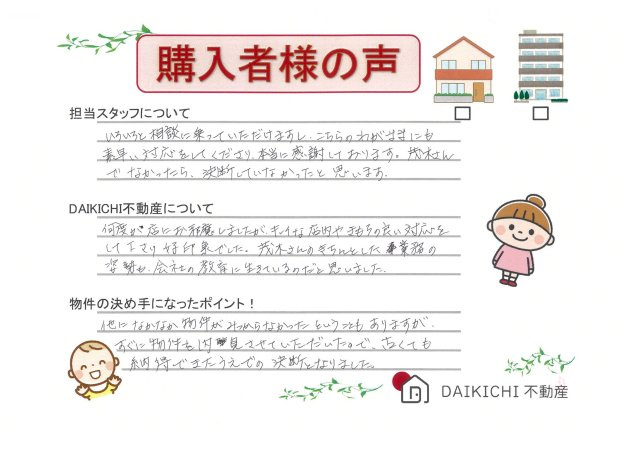 購入者様の声
担当スタッフについて
いろいろと相談に乗っていただけますし、こちらのわがままにも
素早い対応をしてくださり、本当に感謝しております。茂木さん
でなかったら、決断していなかったと思います。
DAIKICHI不動産について
何度か店にお邪魔しましたが、キレイな店内や気持ちの良い対応を
して下さり好印象でした。茂木さんのきちんとした営業の
姿勢も、会社の教育に生きているのだと思いました。
物件の決め手になったポイント！
他になかなか物件がみつからなかったということもありますが、
すぐに物件を内見させていただいたので、古くても
納得できたうえでの決断となりました。
DAIKICHI 不動産